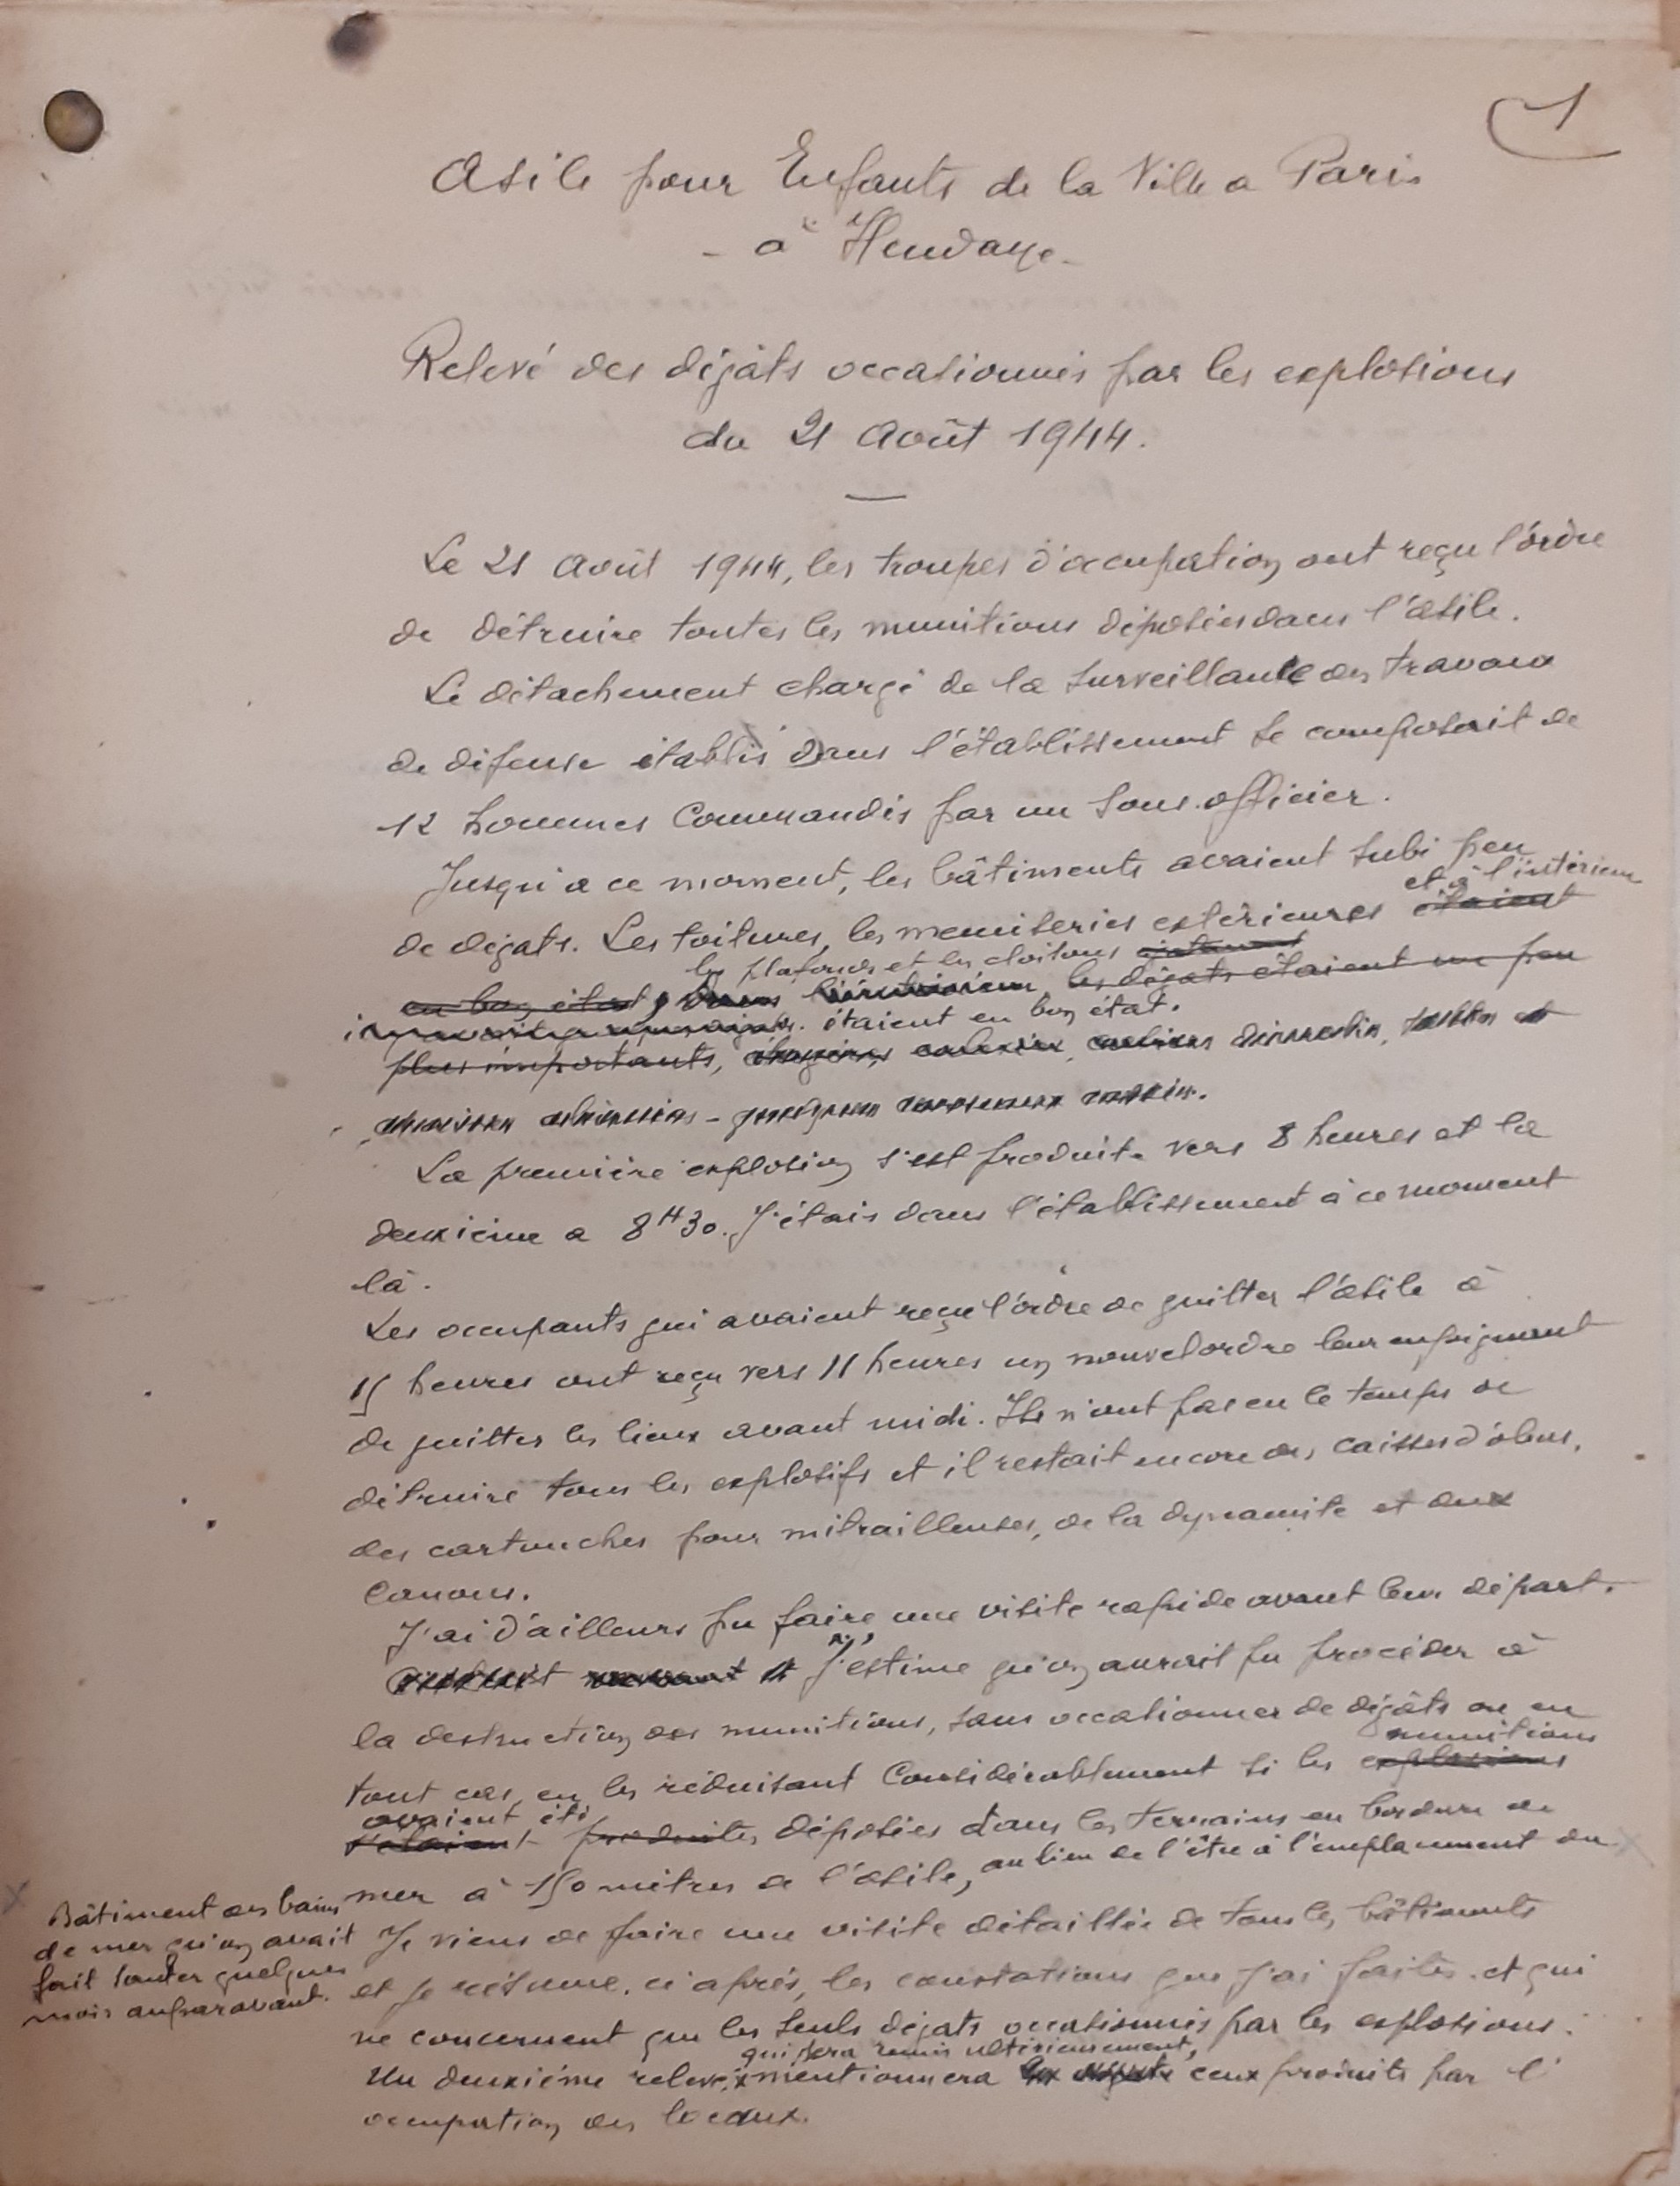 1
Asile pour Enfants de la Ville a Paris
- à Hendaye -
Relevé des dégâts occasionnés par les explosions
du 21 Août 1944.
Le 21 Août 1944, les troupes d'occupation ont reçu l'ordre
de détruire toutes les munitions déposées dans l'asile.
Le détachement chargé de la surveillance des travaux
de défense établis dans l'établissement se composait de
12 hommes Commandés par un Sous-officier.
Jusqu'a ce moment, les bâtiments avaient subi peu
et à l'intérieur
de dégats. Les toitures, les menuiseries extérieures étaient
les plafonds et les cloisons étaient
en bon état, Dans l'intérieur, les dégats étaient un peu
étaient en bon état.
plus importants,
La première explosion s'est produite vers 8 heures et la
deuxième a 8H30. J'étais dans l'établissement à ce moment
là.
Les occupants qui avaient reçu l'ordre de quitter l'asile à
15 heures ont reçu vers 11 heures un nouvel ordre leur enjoignant
de quitter les lieux avant midi. Ils n'ont pas eu le temps de
détruire tous les explosifs et il restait encore des caisses d'obus,
des cartouches pour mitrailleuses, de la dynamite et deux
Canons.
J'ai d'ailleurs pu faire une visite rapide avant leur départ.
J'estime qu'on aurait pu procéder à
la destruction des munitions, sans occasionner de dégâts ou en
munitions
tout cas, en les réduisant Considérablement si les explosions
avaient été
s'étaient produites déposées dans les terrains en bordure de
mer à 150 mètres de l'asile, au lieu de l'être à l'emplacement du x
x Bâtiment des bains
de mer qu'on avait
fait sauter quelques
mois auparavant.
Je viens de faire une visite détaillée de tous les bâtiments
et je résume, ci après, les constations que j'ai faites et qui
ne concernent que les seuls dégats occasionnés par les explosions.
qui sera remis ultérieurement,
Un deuxième relevé, mentionnera les dégats ceux produits par l'
occupation des locaux.